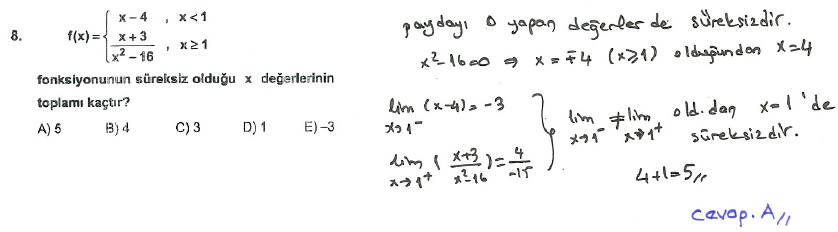 8. f(x)= { x-4 , x<1
x+3 / x² - 16 , x≥1
fonksiyonunun süreksiz olduğu x değerlerinin
toplamı kaçtır?
A) 5 B) 4 C) 3 D) 1 E) -3
paydayı 0 yapan değerler de süreksizdir.
x²-16=0 ⇒ x = ∓4 (x≥1) olduğundan x=4
lim x→1⁻ (x-4) = -3
lim x→1⁺ (x+3 / x²-16) = 4 / -15
lim x→1⁻ ≠ lim x→1⁺ old.dan x=1'de
süreksizdir.
4+1=5//
cevap. A//